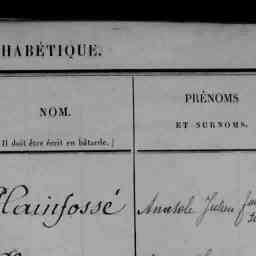 HABÉTIQUE.
NOM.
( Il doit être écrit en bâtarde. )
PRÉNOMS
ET SURNOMS.
lainfossé
Anatole Julien